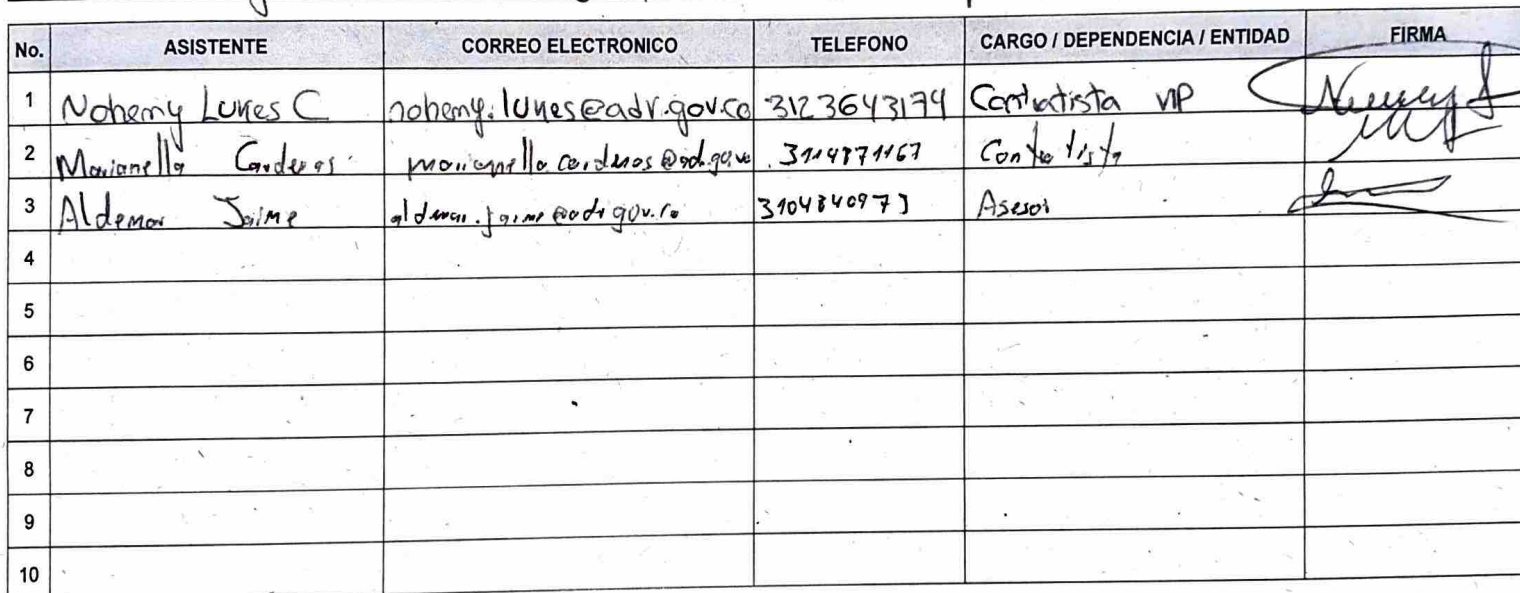 No. ASISTENTE CORREO ELECTRONICO TELEFONO CARGO / DEPENDENCIA / ENTIDAD FIRMA
1 Nohemy Lunes C nohemy.lunes@adr.gov.co 3123643174 Contratista VIP
2 Marianella Cardenas marianella.cardenas@adr.gov.co 3114871167 Contratista
3 Aldemar Jaime aldemar.jaime@adr.gov.co 3104840973 Asesor
4
5
6
7
8
9
10